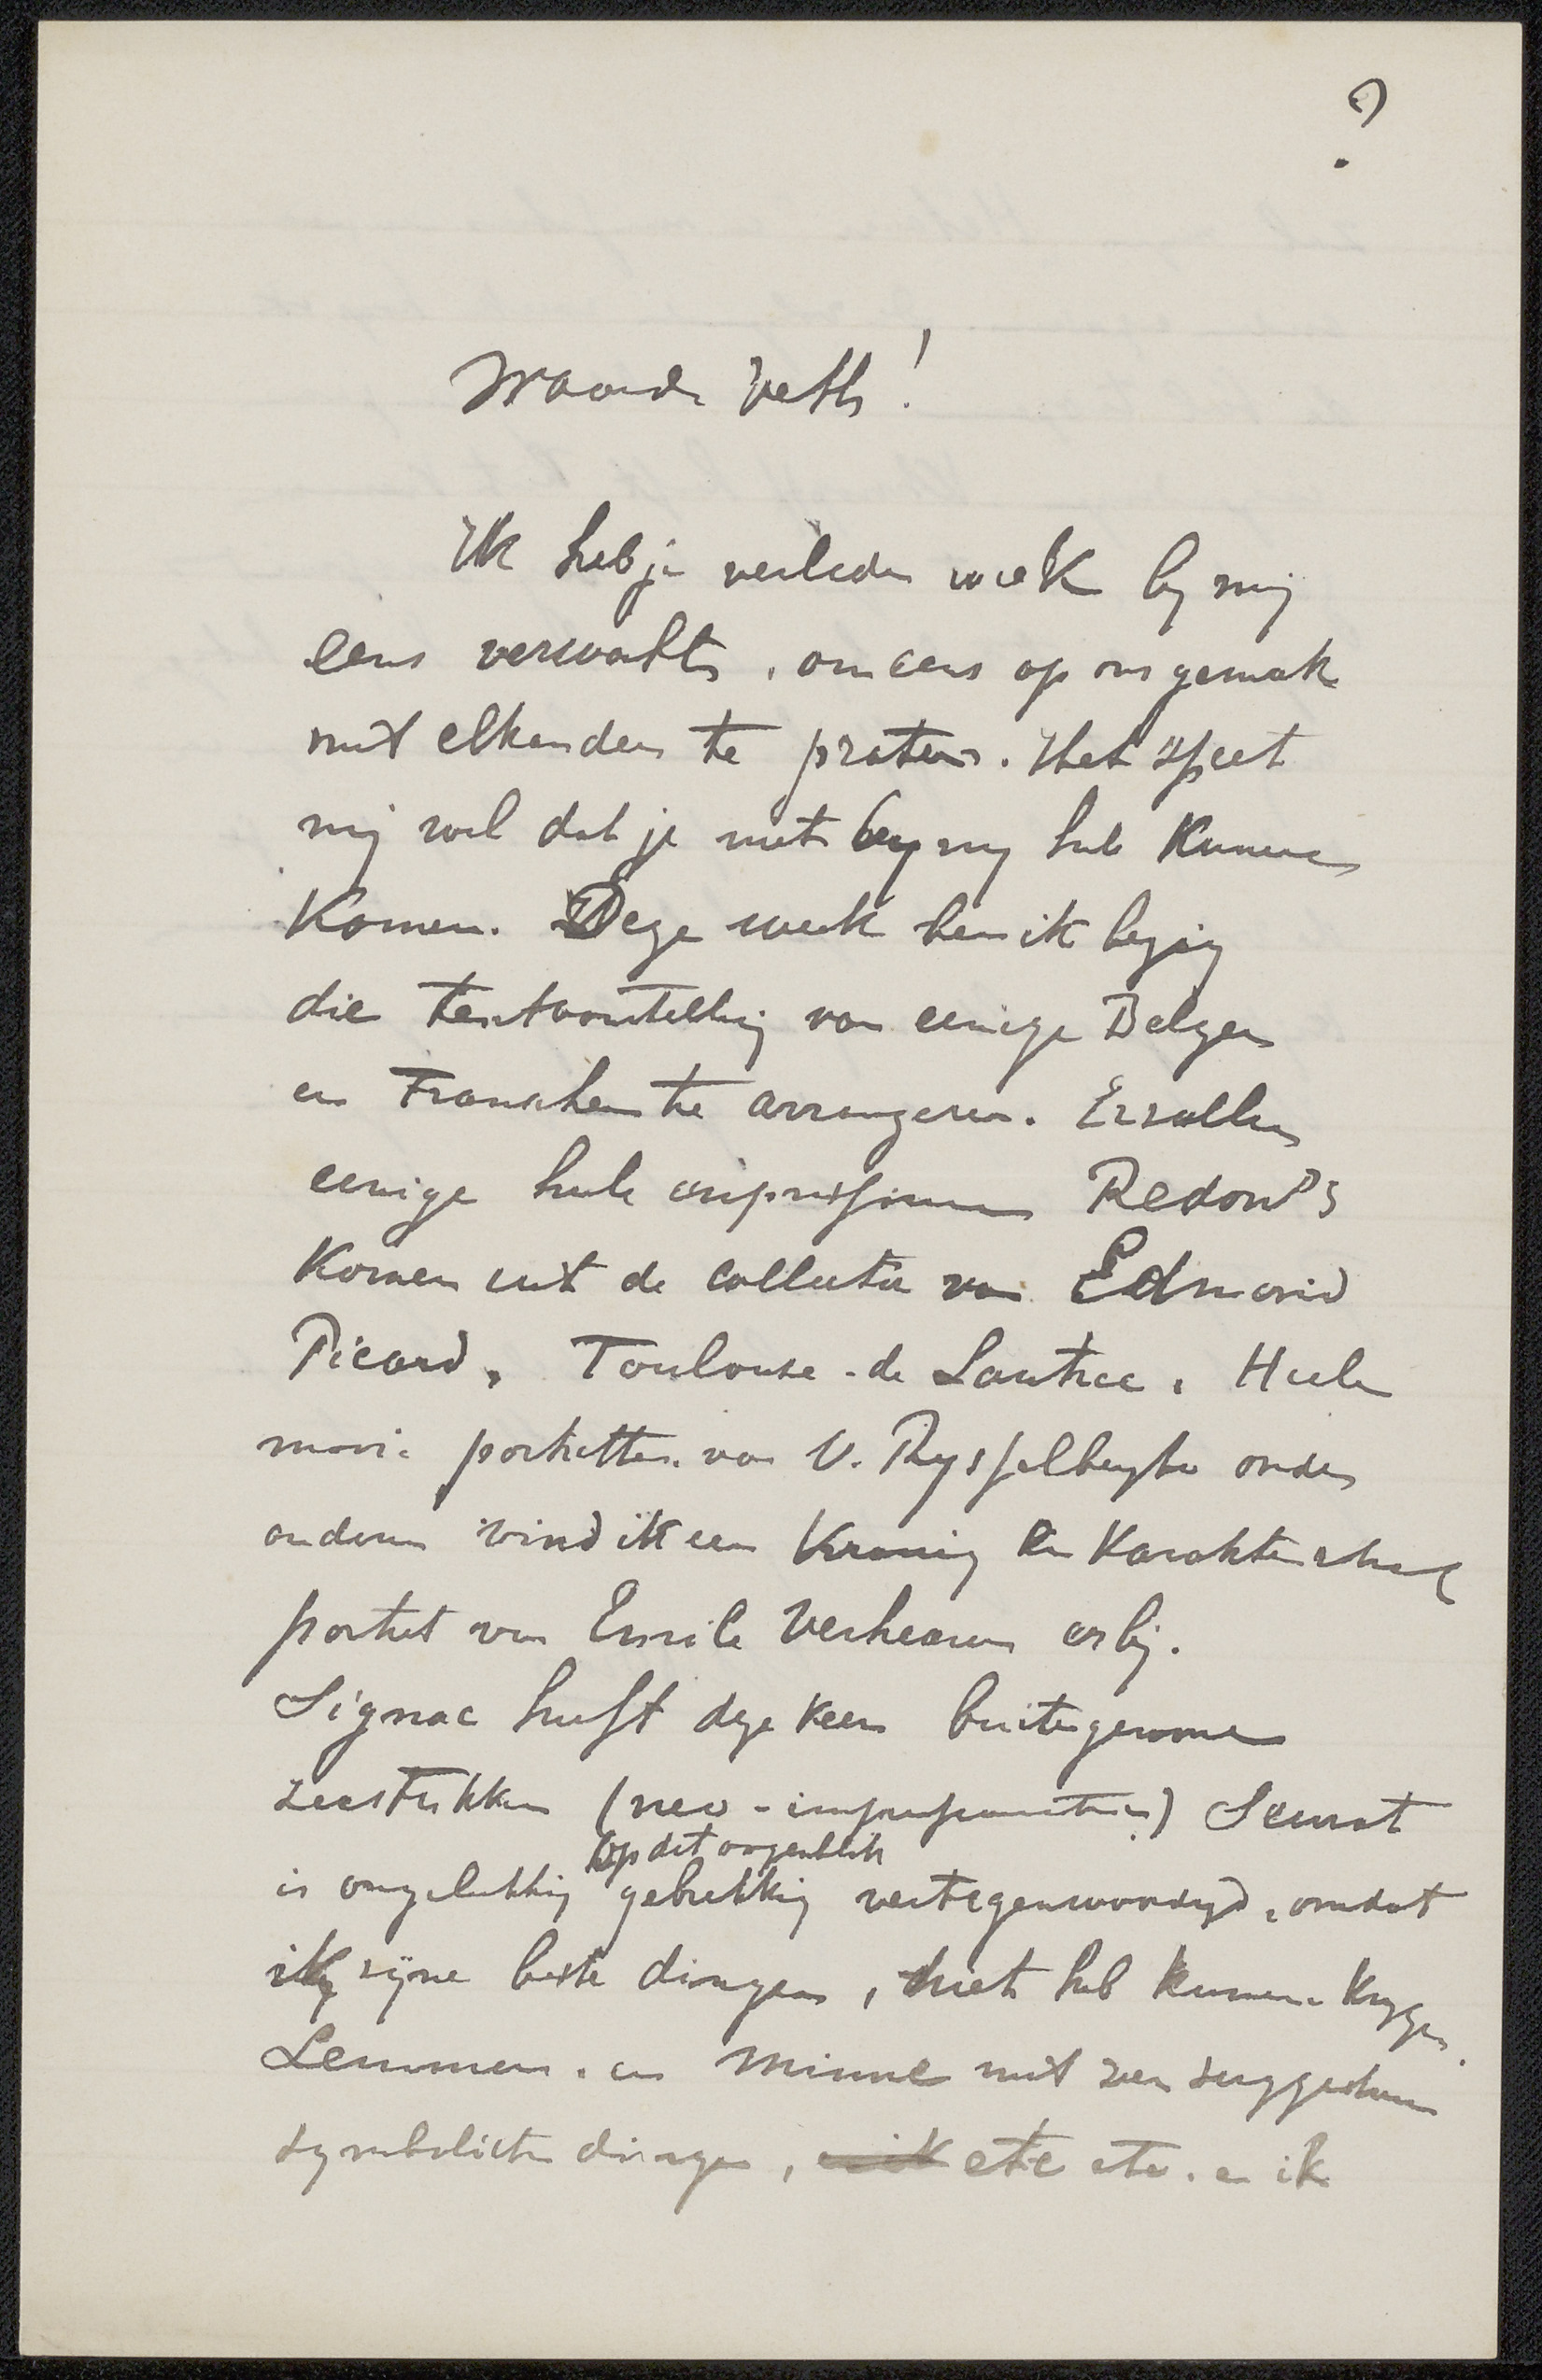 ?
Waarde Veth!
Ik heb je verleden week by mij
eens verwacht, om eens op ons gemak
met elkander te praten. Het speet
mij wel dat je niet by my heb kunnen
komen. Deze week ben ik bezig
die tentoonstelling van eenige Belgen
en Franschen te arrangeren. Er zullen
eenige heele Redon's
komen uit de collectie van Edmond
Picard, Toulouse-de Lautrec, Heele
mooie portretten van V. Rysselberghe onder
anderen vind ik een kranig en karaktervol
portret van Emile Verhearen erbij.
Signac heeft deze keer buitengewone
zeestukken (neo-impressionisten) Seurat
is ongelukkig op dit oogenblik gebrekkig vertegenwoordigd, omdat
ik zyne beste dingen, niet heb kunnen krygen.
Lemmen. en Minne met zeer
symbolische dingen, etc etc. en ik